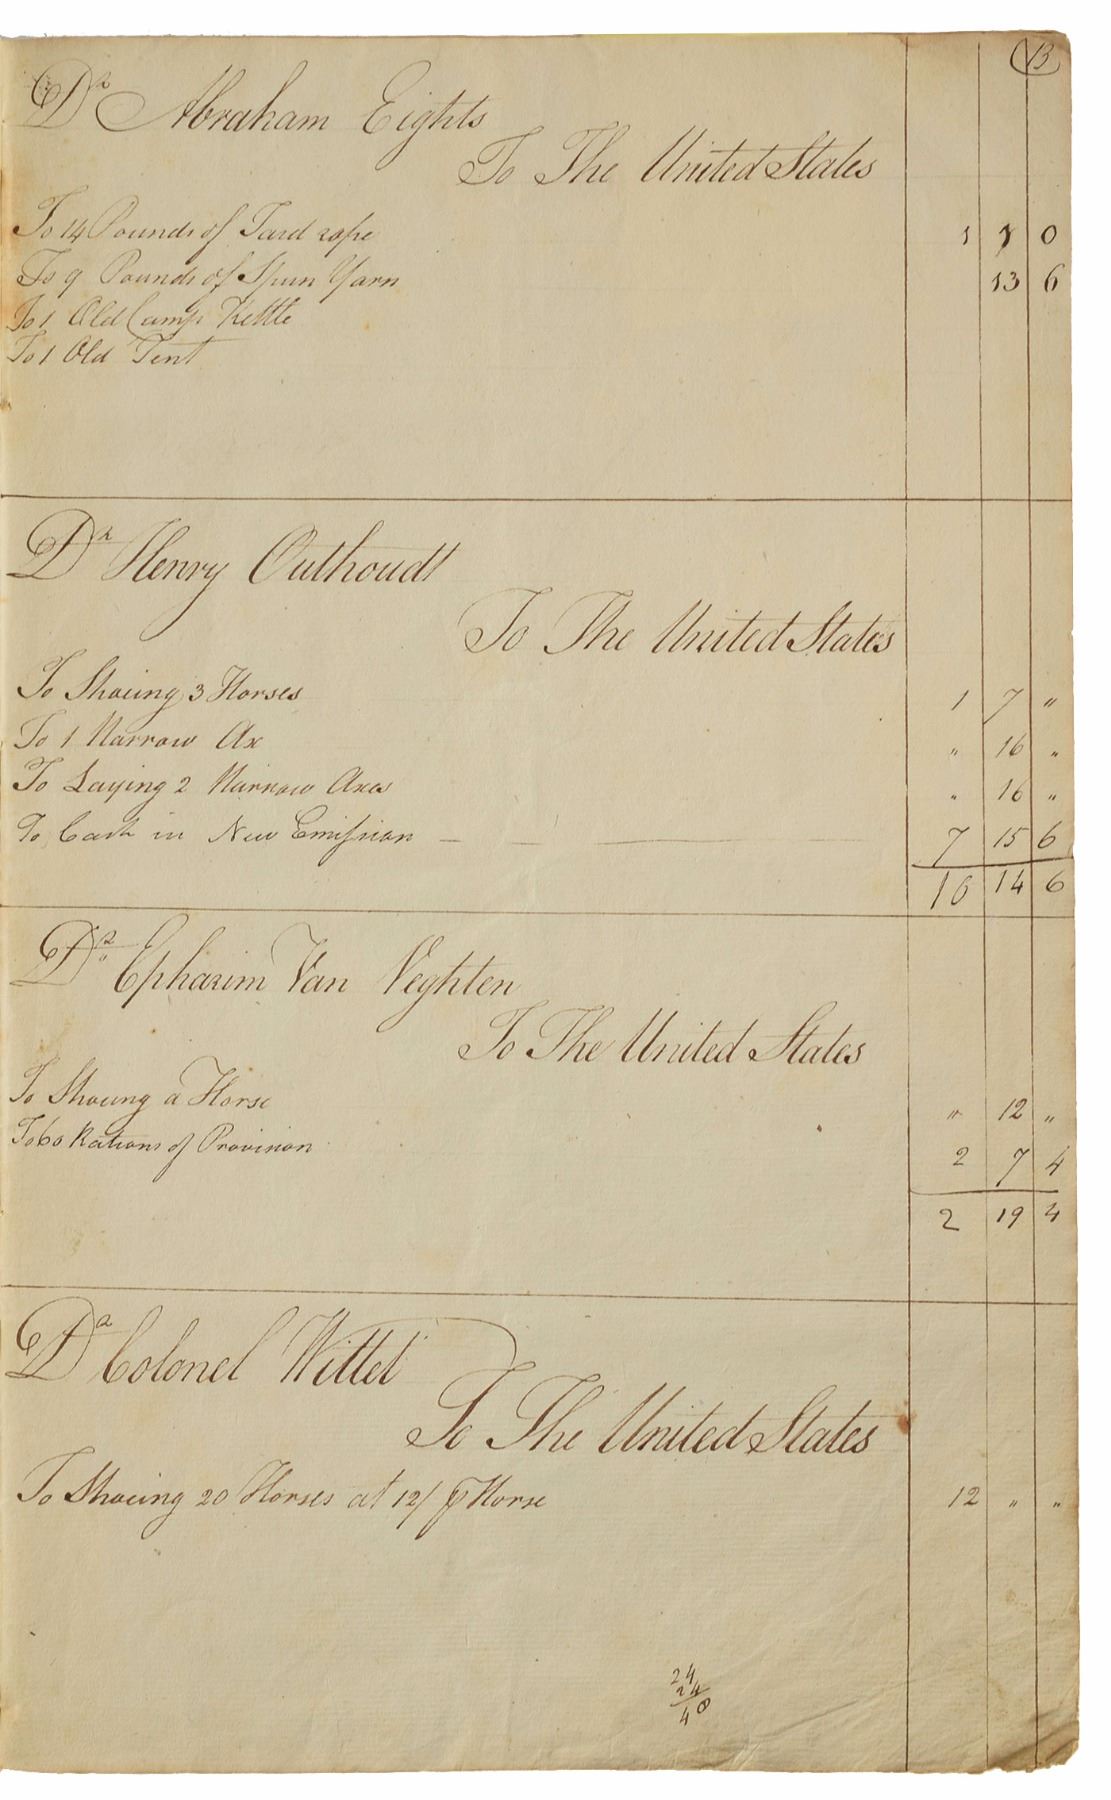 13
Dr Abraham Eights
To The United States
To 14 Pounds of Tard rope 1 1 0
To 9 Pounds of Spun Yarn 13 6
To 1 Old Camp Kettle
To 1 Old Tent
Dr Henry Outhoudt
To The United States
To Shoeing 3 Horses 1 7 "
To 1 Narrow Ax " 16 "
To Laying 2 Narrow Axes " 16 "
To Cash in New Emission — — — 7 15 6
10 14 6
Dr Epharim Van Veghten
To The United States
To Shoeing a Horse " 12 "
To 60 Rations of Provision 2 7 4
2 19 4
Dr Colonel Willet
To The United States
To Shoeing 20 Horses at 12/ ⅌ Horse 12 " "
24
24
48